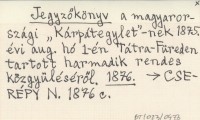 Jegyzőkönyv a magyaror-
szági „Kárpátegylet"-nek 1875.
évi aug. hó 1-én Tátra-Füreden
tartott harmadik rendes
közgyüléséről. 1876. → CSE-
RÉPY N. 1876 c.